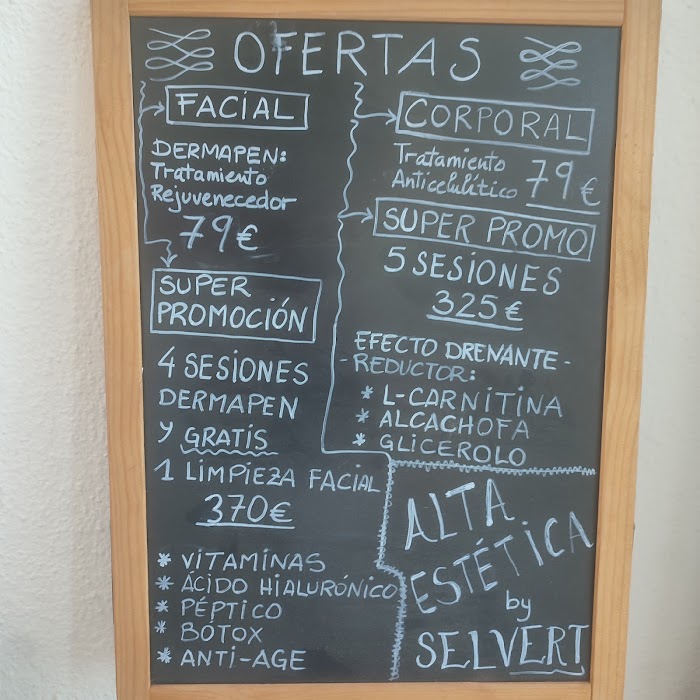 OFERTAS
FACIAL
DERMAPEN:
Tratamiento
Rejuvenecedor
79€
SUPER
PROMOCIÓN
4 SESIONES
DERMAPEN
y GRATIS
1 LIMPIEZA FACIAL
370€
* VITAMINAS
* ÁCIDO HIALURÓNICO
* PÉPTICO
* BÓTOX
* ANTI-AGE
CORPORAL
Tratamiento
Anticelulítico 79€
SUPER PROMO
5 SESIONES
325€
EFECTO DRENANTE-
-REDUCTOR:
* L-CARNITINA
* ALCACHOFA
* GLICEROLO
ALTA
ESTÉTICA
by
SELVERT